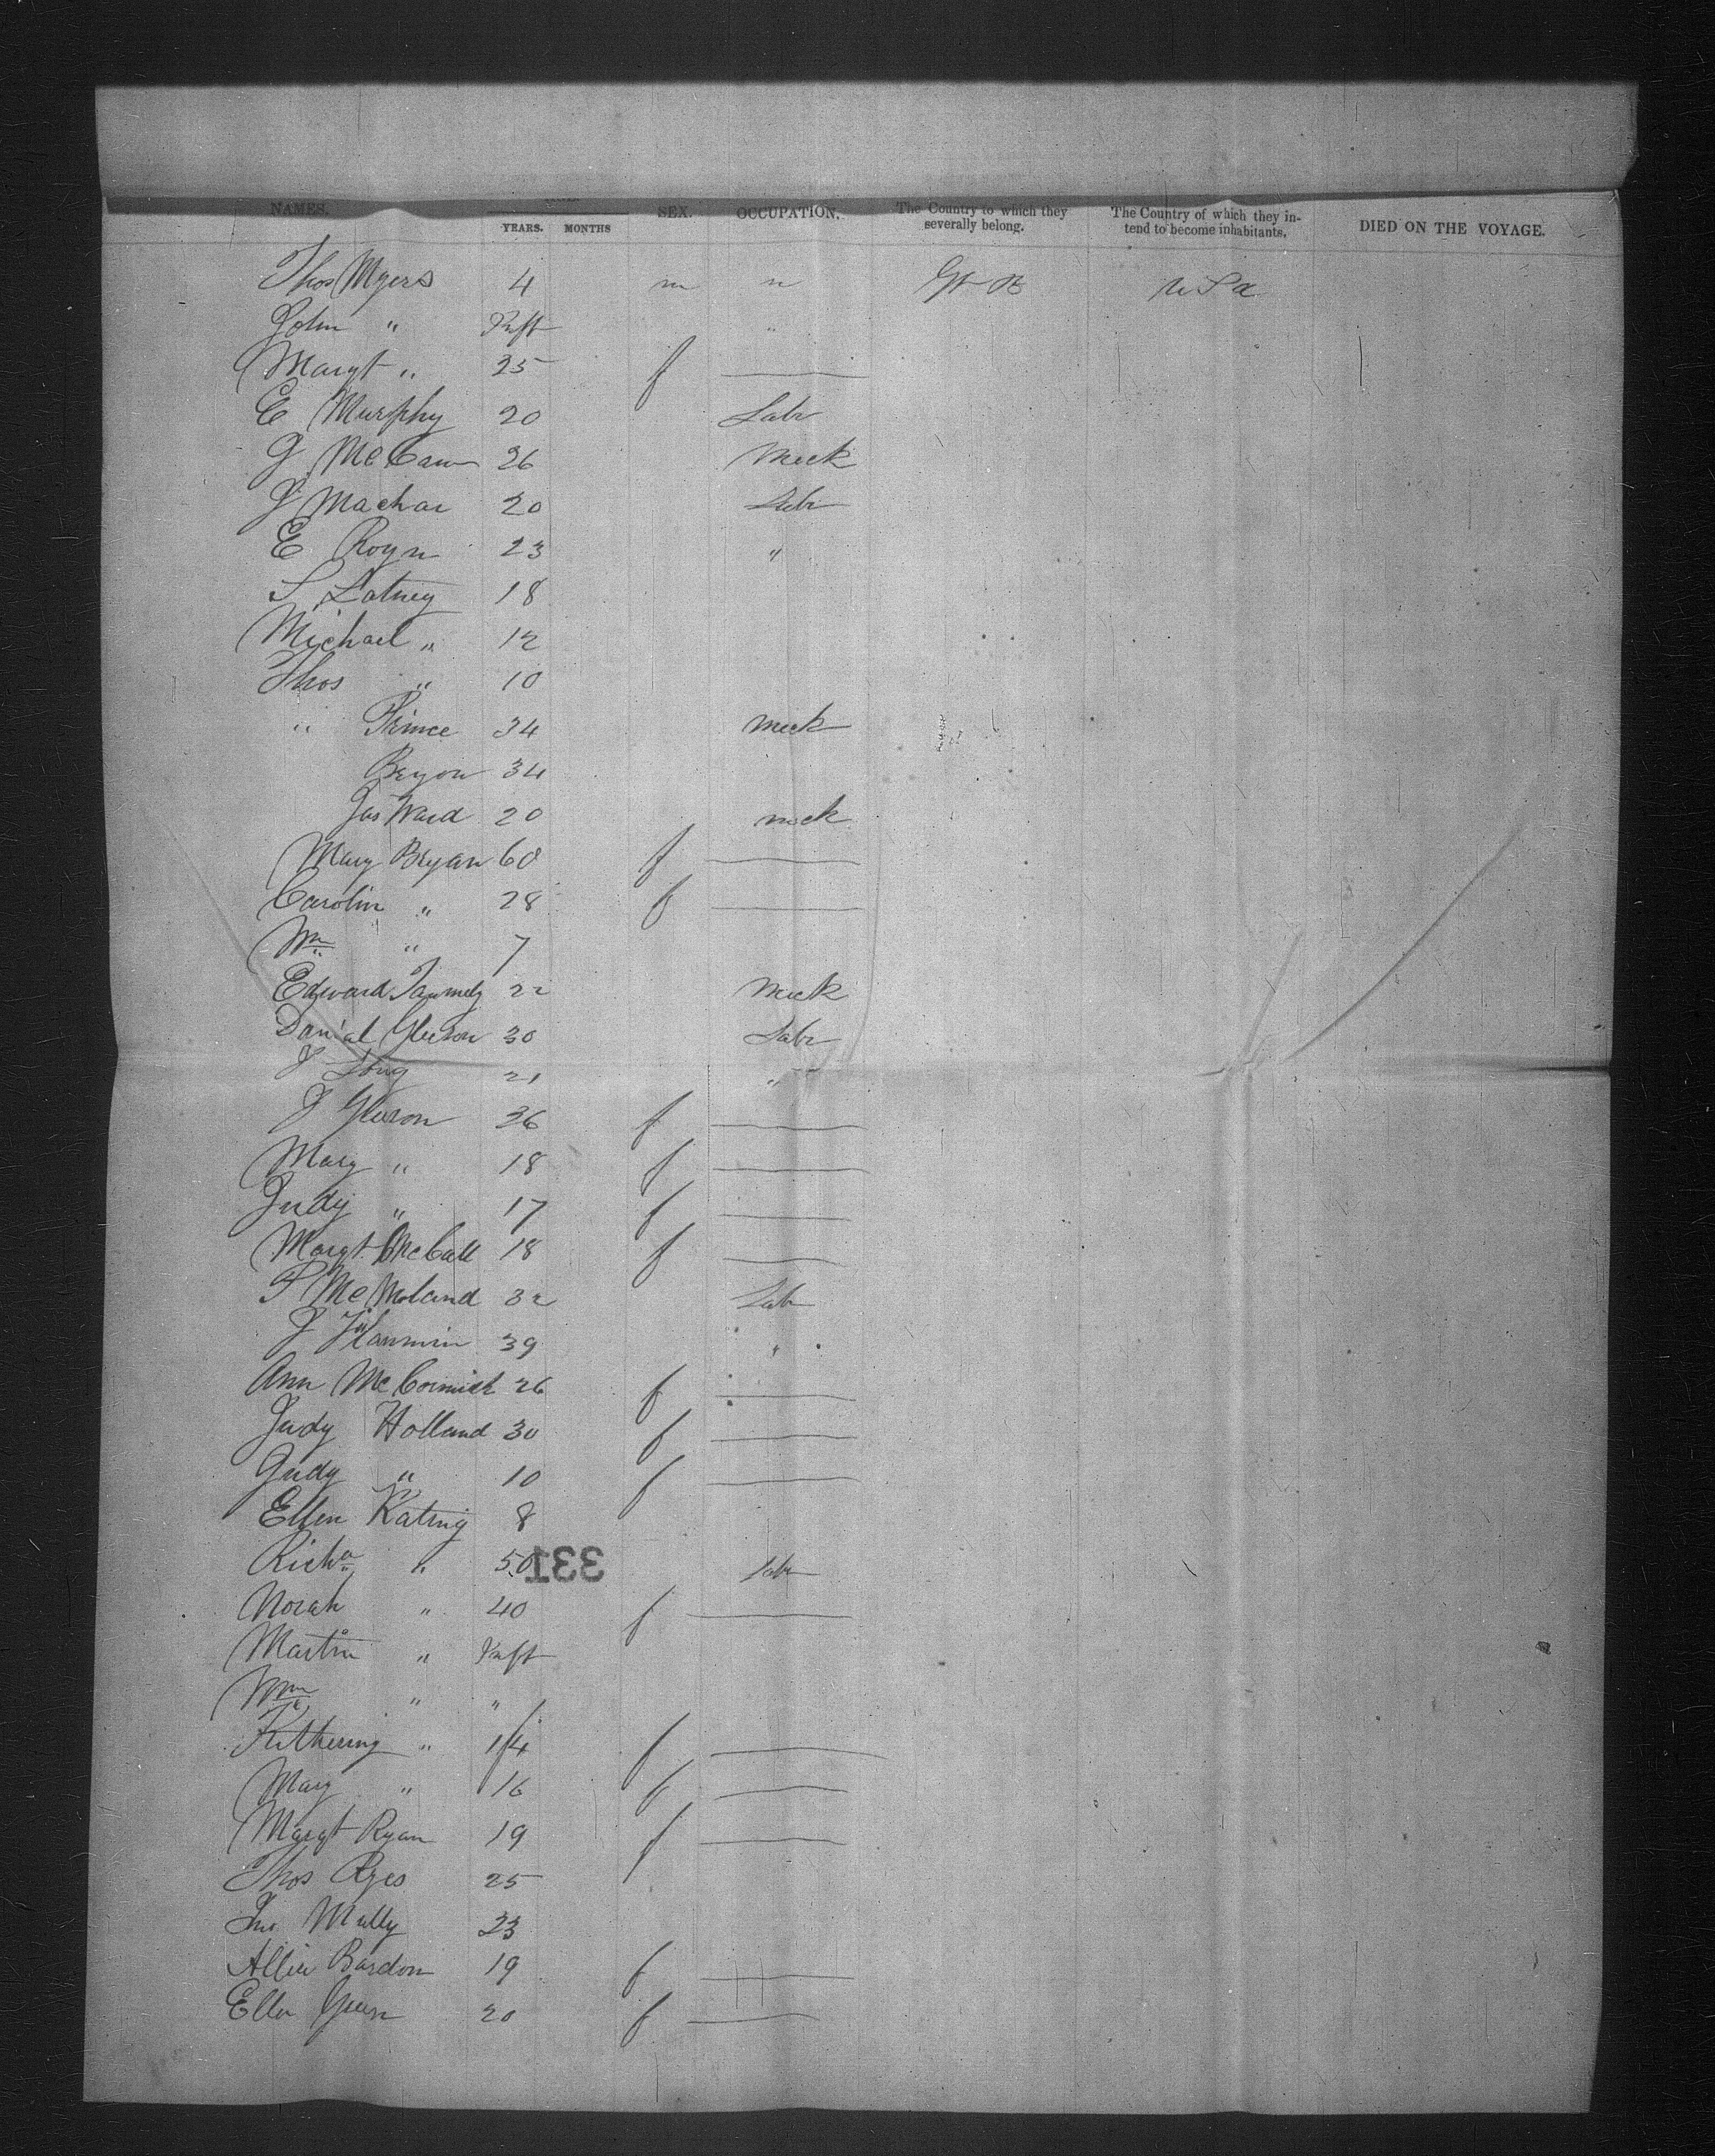 NAMES. YEARS. MONTHS SEX. OCCUPATION. The Country to which they severally belong. The Country of which they intend to become inhabitants. DIED ON THE VOYAGE.
Thos Myers 4 m " Gt B U S A
John " Inft "
Margt " 25 f
E Murphy 20 Labr
J McCann 26 Meck
J Machar 20 Labr
E Royn 23 "
S Latney 18
Michael " 12
Thos " 10
" Prince 34 Meck
Bryon 34
Jas Ward 20 meck
Mary Bryan 60 f
Carolin " 28 f
Wm " 7
Edward 22 Meck
Danial Gleeson 30 Labr
J Long 21 "
J Gleeson 36 f
Mary " 18 f
Judy " 17 f
Margt McCall 18 f
P 32 Lab
J 39 "
Ann McCormick 26 f
Judy Holland 30 f
Judy " 10 f
Ellen Kating 8
Richd " 50 Labr
331
Norah " 40 f
Martin " Inft
Wm " "
Kathering " 14 f
Mary " 16 f
Margt Ryan 19 f
Thos Ryes 25
Jno Mully 23
Allice Bardon 19 f
Ellen Green 20 f